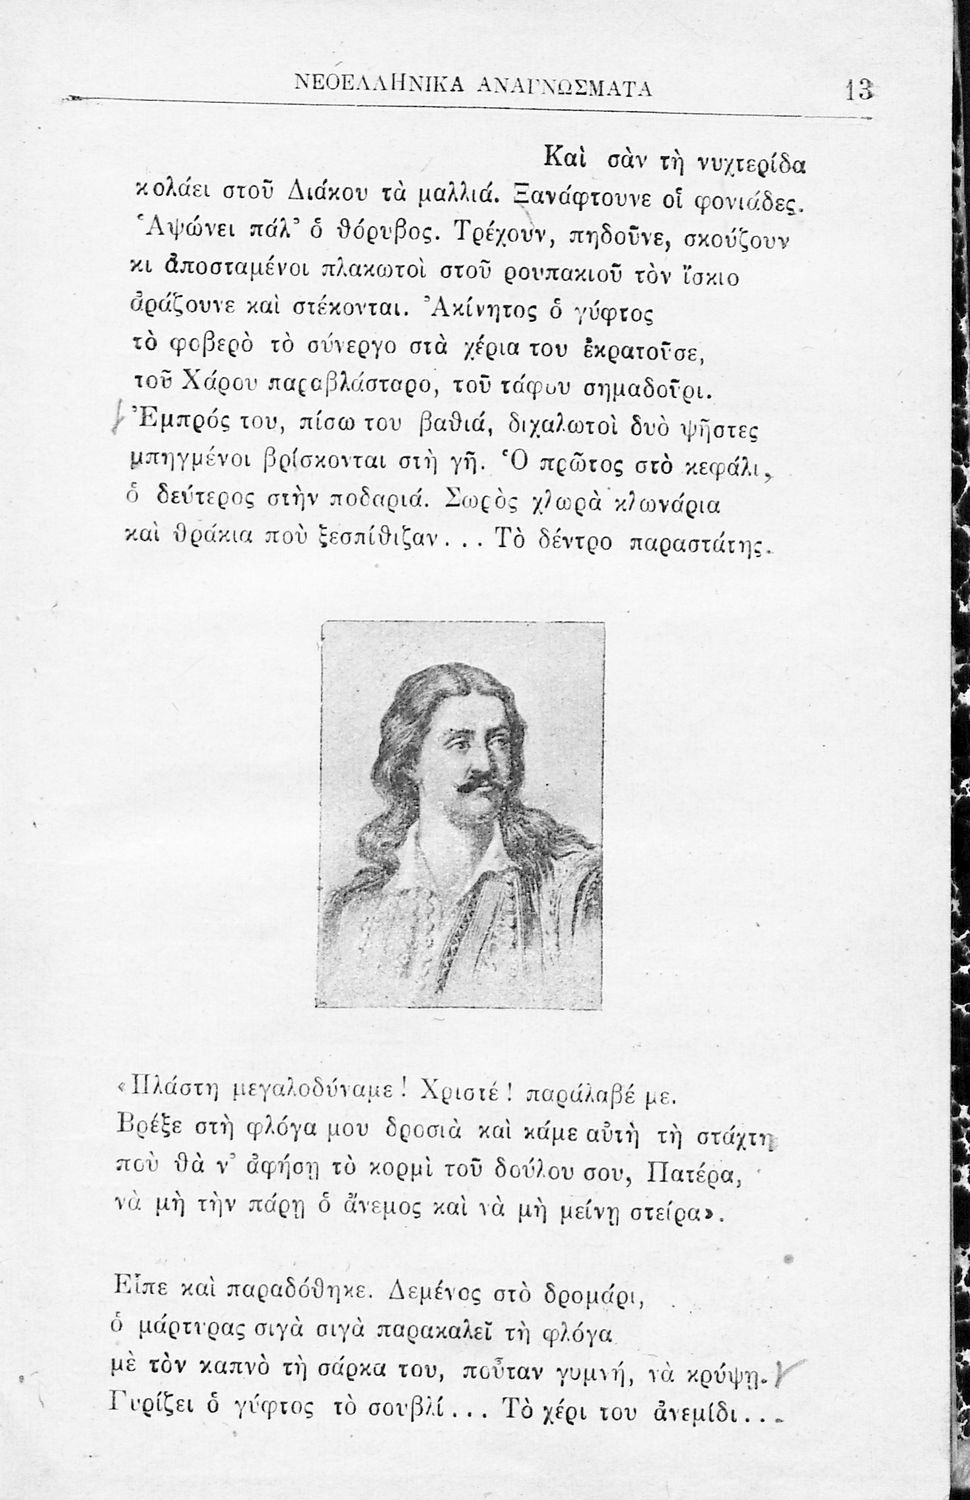 ΝΕΟΕΛΛΗΝΙΚΑ ΑΝΑΓΝΩΣΜΑΤΑ 13
Καὶ σὰν τὴ νυχτερίδα
κολάει στοῦ Διάκου τὰ μαλλιά. Ξανάφτουνε οἱ φονιάδες.
Ἁψώνει πάλ' ὁ θόρυβος. Τρέχουν, πηδοῦνε, σκούζουν
κι ἀποσταμένοι πλακωτοὶ στοῦ ρουπακιοῦ τὸν ἴσκιο
ἀράζουνε καὶ στέκονται. Ἀκίνητος ὁ γύφτος
τὸ φοβερὸ τὸ σύνεργο στὰ χέρια του ἐκρατοῦσε,
τοῦ Χάρου παραβλάσταρο, τοῦ τάφου σημαδοῦρι.
Ἐμπρός του, πίσω του βαθιά, διχαλωτοὶ δυὸ ψῆστες
μπηγμένοι βρίσκονται στὴ γῆ. Ὁ πρῶτος στὸ κεφάλι,
ὁ δεύτερος στὴν ποδαριά. Σωρὸς χλωρὰ κλωνάρια
καὶ θράκια ποὺ ξεσπίθιζαν... Τὸ δέντρο παραστάτης.
«Πλάστη μεγαλοδύναμε! Χριστέ! παράλαβέ με.
Βρέξε στὴ φλόγα μου δροσιὰ καὶ κάμε αὐτὴ τὴ στάχτη
ποὺ θὰ ν' ἀφήσῃ τὸ κορμὶ τοῦ δούλου σου, Πατέρα,
νὰ μὴ τὴν πάρῃ ὁ ἄνεμος καὶ νὰ μὴ μείνῃ στείρα».
Εἶπε καὶ παραδόθηκε. Δεμένος στὸ δρομάρι,
ὁ μάρτυρας σιγὰ σιγὰ παρακαλεῖ τὴ φλόγα
μὲ τὸν καπνὸ τὴ σάρκα του, ποὖταν γυμνή, νὰ κρύψῃ.
Γυρίζει ὁ γύφτος τὸ σουβλί... Τὸ χέρι του ἀνεμίδι...